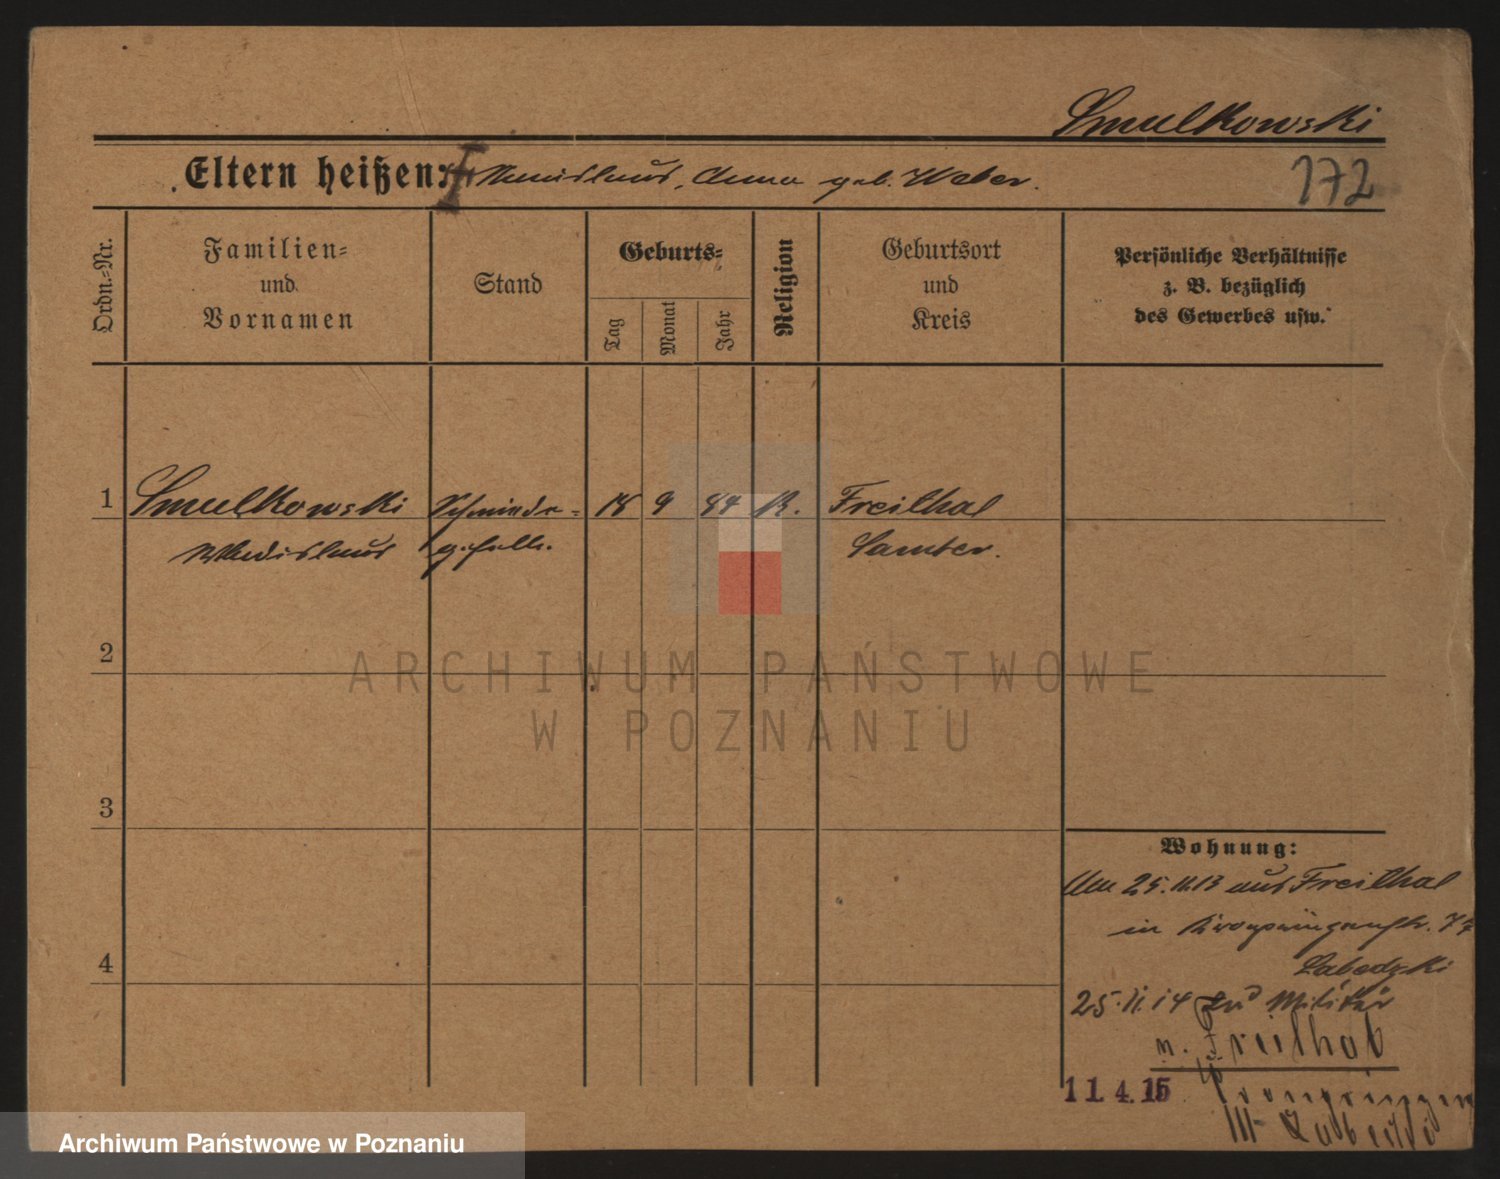 Smulkowski
Eltern heißen: Stanislaus, Anna geb. Weber.
172
Ordn.-Nr.
Familien-
und
Vornamen
Stand
Geburts-
Tag
Monat
Jahr
Religion
Geburtsort
und
Kreis
Persönliche Verhältnisse
z. B. bezüglich
des Gewerbes usw.
1 Smulkowski Schmiede- 18 9 84 K. Freithal
Wladislaus geselle. Samter.
2
ARCHIWUM PAŃSTWOWE
W POZNANIU
3
Wohnung:
25.11.13 aus Freithal
4
in Kronprinzenstr.
25.11.14 Militär
n. Freithal
11.4.15
Kronprinzen
Archiwum Państwowe w Poznaniu